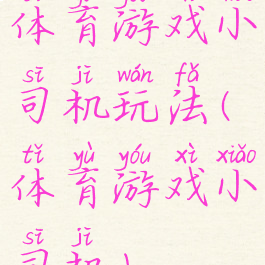 体育游戏小
sī jī wán fǎ
司机玩法(
tǐ yù yóu xì xiǎo
体育游戏小
sī jī
司机)